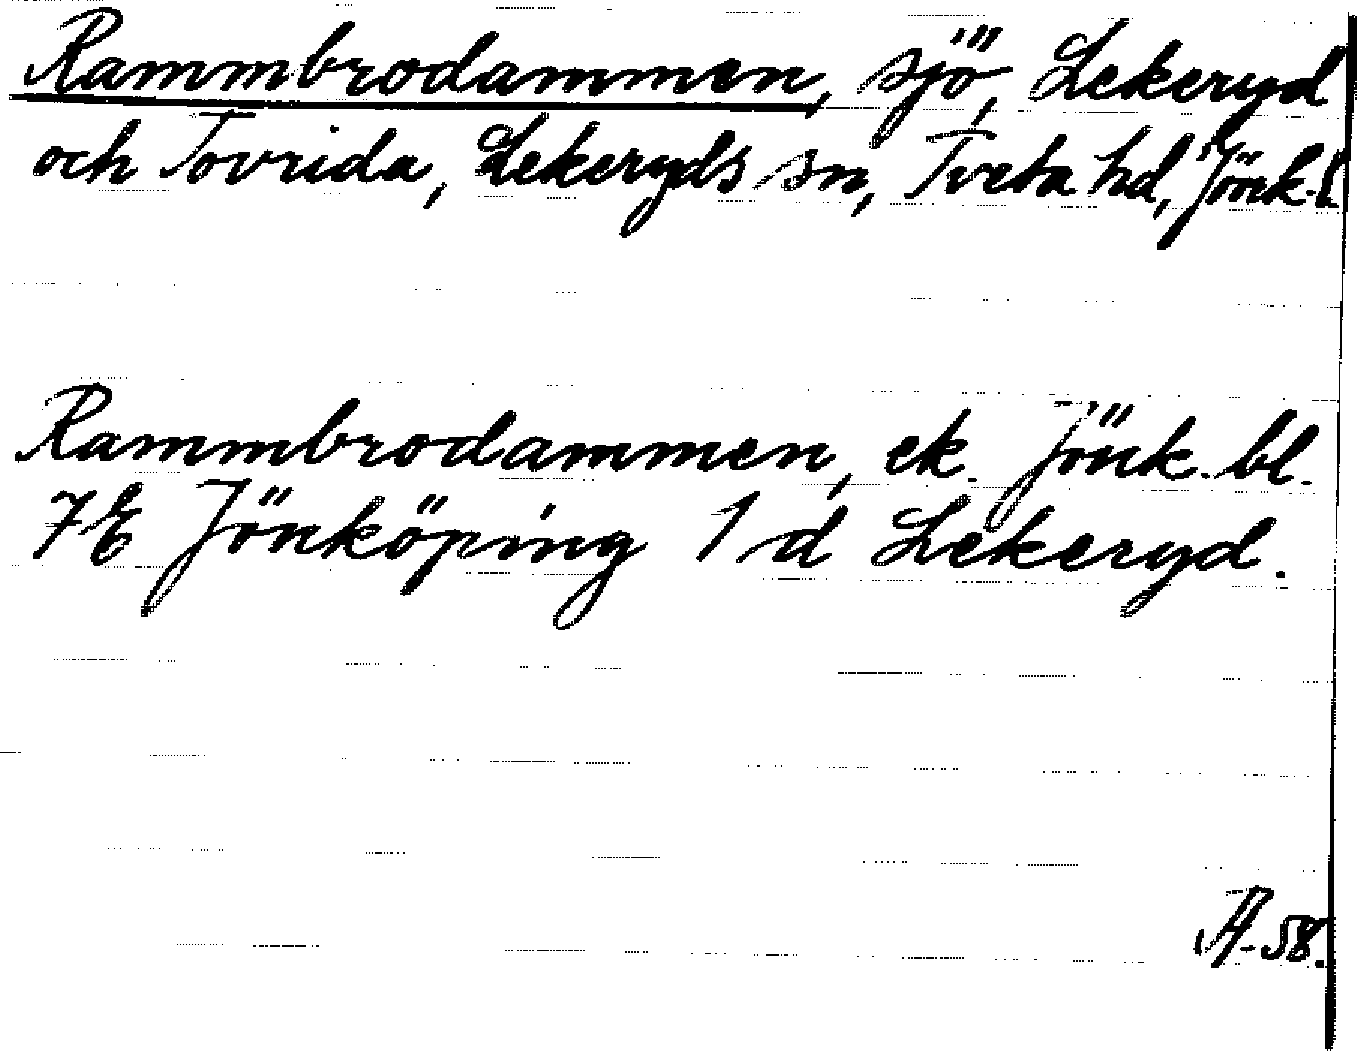 Rammbrodammen, sjö, Lekeryd
och Tovrida, Lekeryds sn, Tveta hd, Jönk.l.
Rammbrodammen, ek. Jönk. bl.
7E Jönköping 1d Lekeryd.
-58.